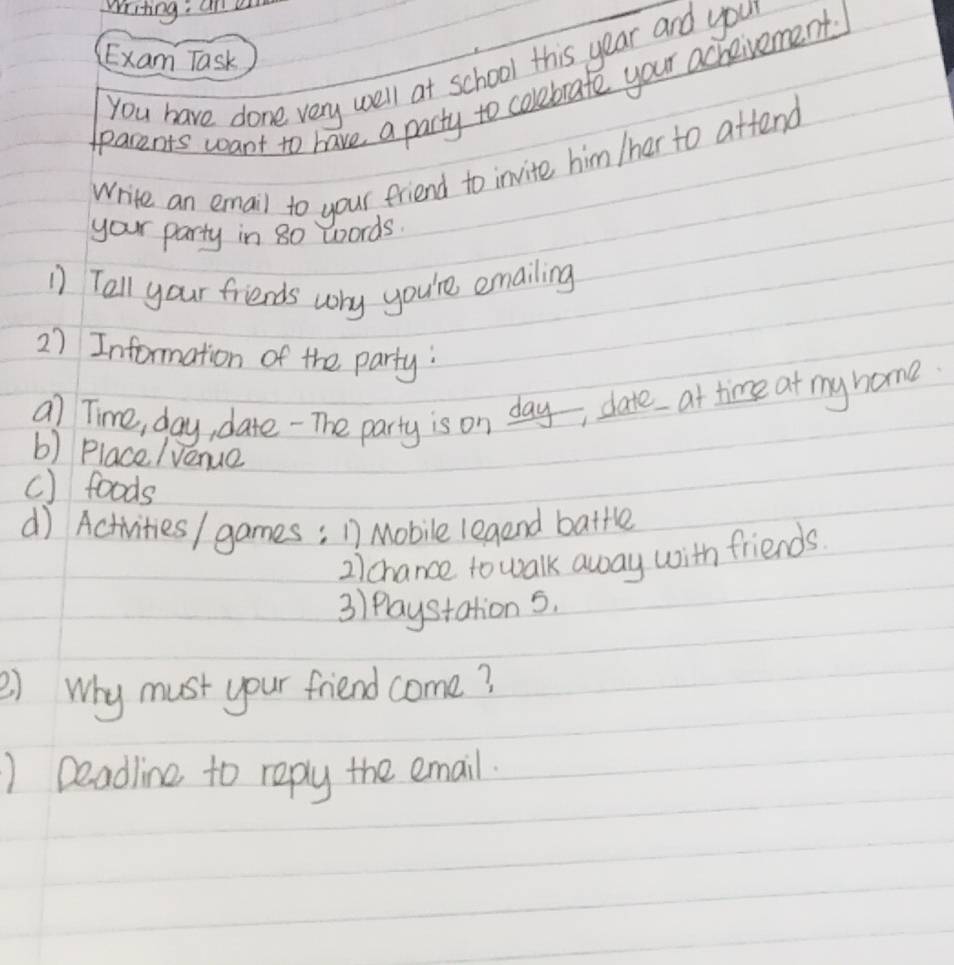 Writing: an
Exam Task
You have done very well at school this year and your
parents want to have a party to celebrate your acheivement.
Write an email to your friend to invite him/her to attend
your party in 80 words.
1) Tell your friends why you're emailing
2) Information of the party:
a) Time, day, date - The party is on day, date at time at my home.
b) Place/Venue
c) foods
d) Activities/games: 1) Mobile legend battle
2) chance to walk away with friends.
3) Playstation 5.
e) Why must your friend come?
) Deadline to reply the email.